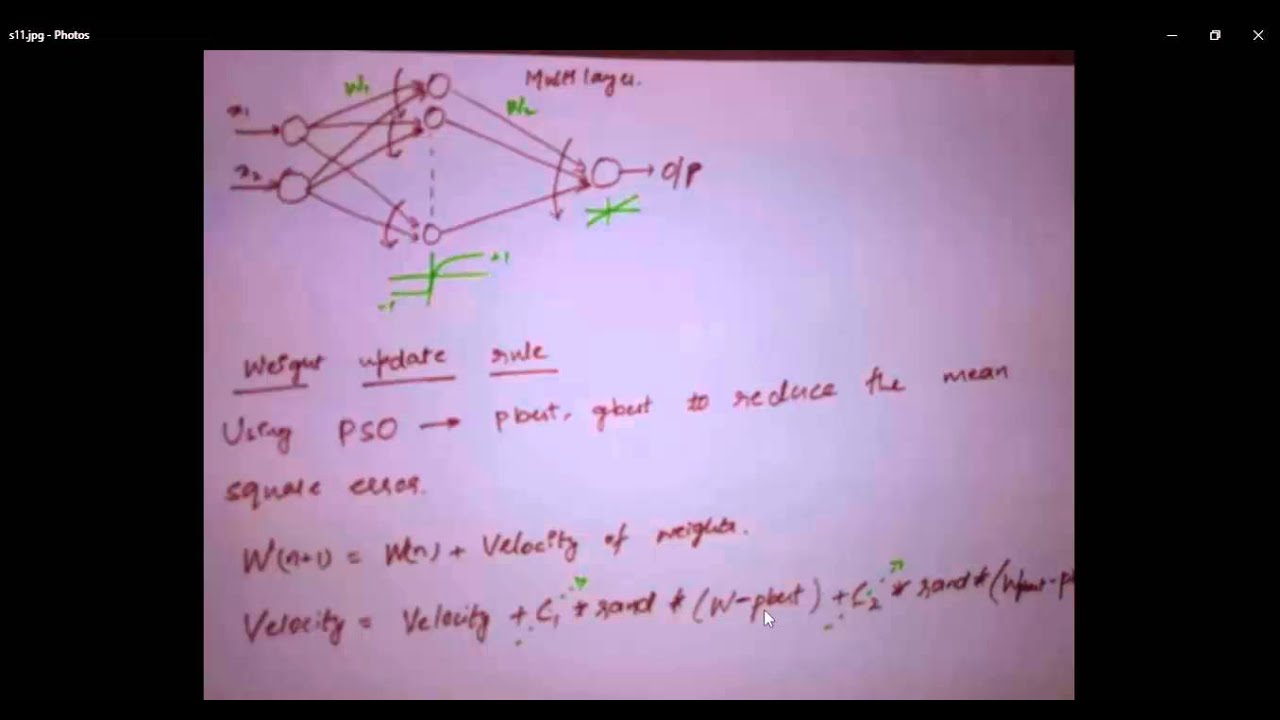 s11.jpg - Photos
Multi layer.
W1
W2
x1
x2
O/P
+1
-1
Weight update rule
Using PSO → pbest, gbest to reduce the mean
square error.
W(n+1) = W(n) + Velocity of weights.
Velocity = Velocity + C1 * rand * (W-pbest) + C2 * rand * (